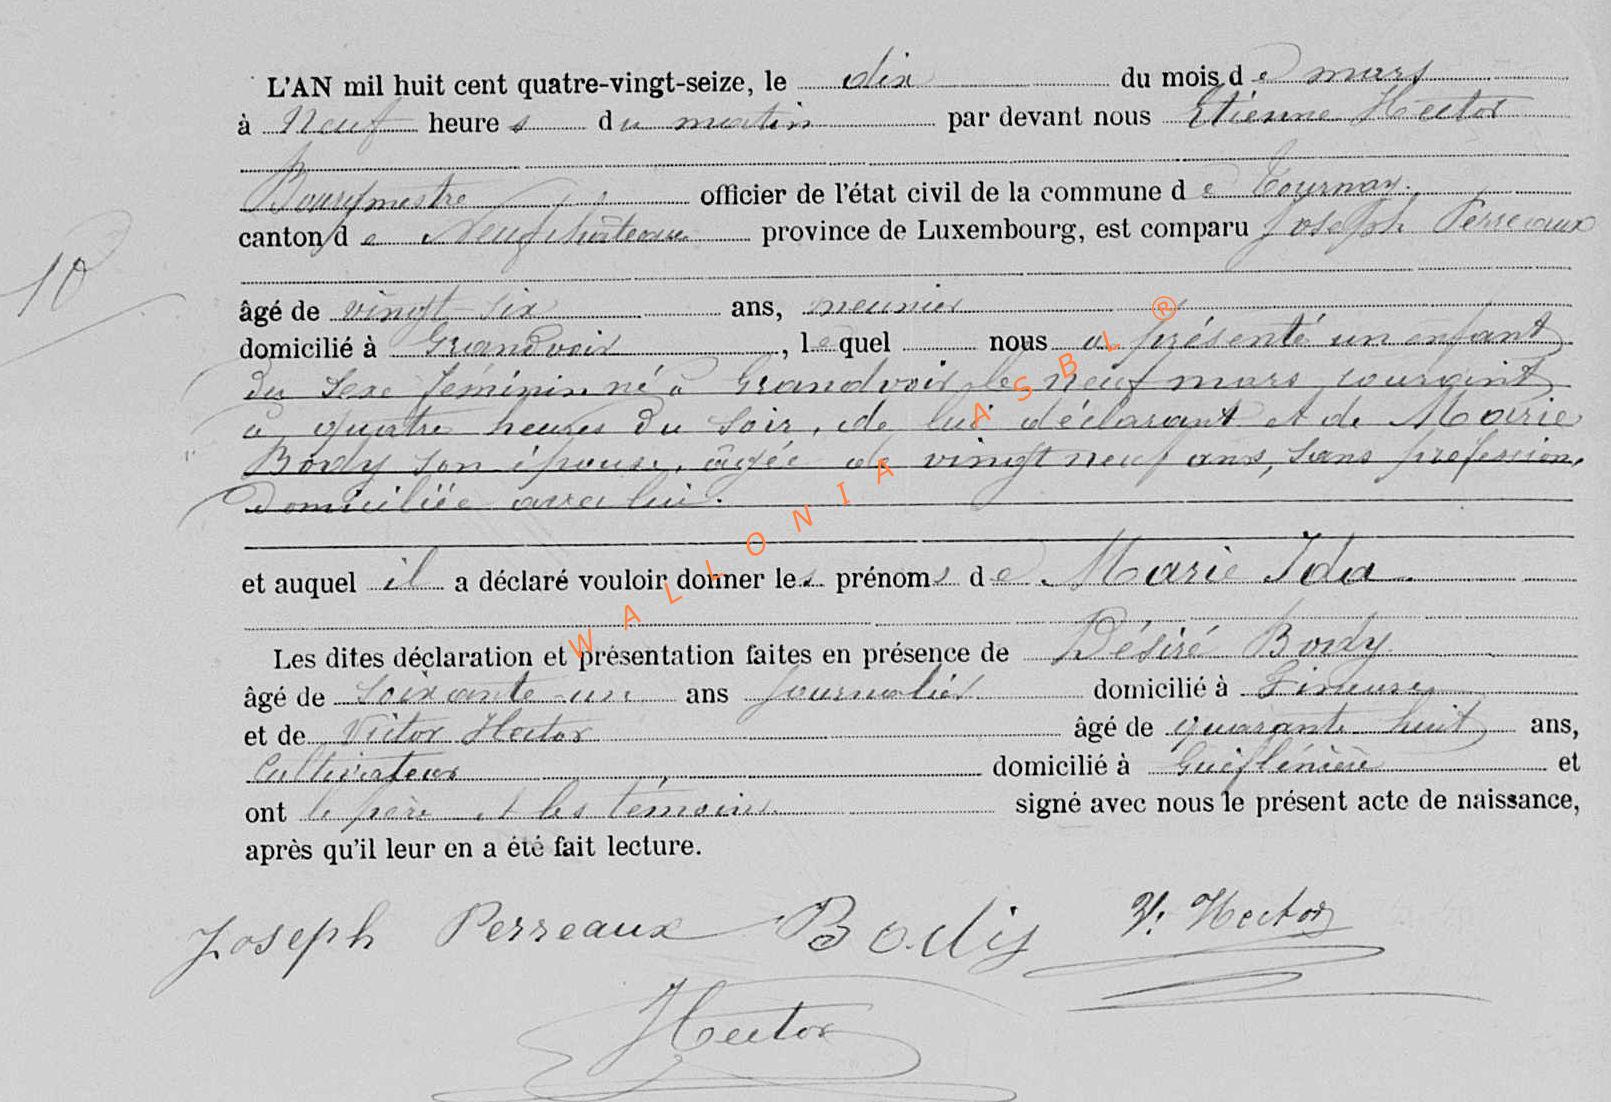 L'AN mil huit cent quatre-vingt-seize, le dix du mois de mars
à Neuf heures du matin par devant nous Etienne Hector
Bourgmestre officier de l'état civil de la commune de Tournay.
canton de Neufchâteau province de Luxembourg, est comparu Joseph Perreaux
10
âgé de vingt-six ans, meunier
domicilié à Grandvoir, lequel nous a présenté un enfant
du sexe féminin né à Grandvoir le neuf mars courant
à quatre heures du soir, de lui déclarant et de Marie
Body son épouse, âgée de vingt neuf ans, sans profession,
domiciliée avec lui.
et auquel il a déclaré vouloir donner les prénoms de Marie Ida.
Les dites déclaration et présentation faites en présence de Désiré Body
âgé de soixante-un ans journalier domicilié à
et de Victor Hector âgé de quarante huit ans,
Cultivateur domicilié à et
ont le père et les témoins signé avec nous le présent acte de naissance,
après qu'il leur en a été fait lecture.
Joseph Perreaux Body V. Hector
Hector
WALLONIA ASBL ®